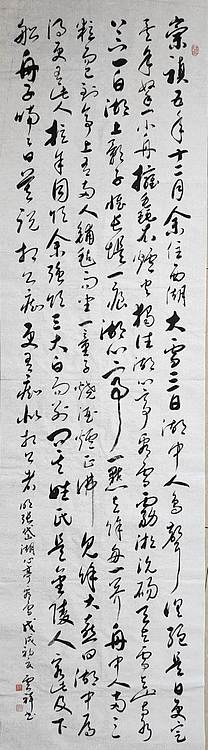 崇禎五年十二月余住西湖大雪三日湖中人鳥聲俱絕是日更定
矣余拏一小舟擁毳衣爐火獨往湖心亭看雪霧凇沆碭天與雲與山與水
上下一白湖上影子惟長堤一痕湖心亭一點與余舟一芥舟中人兩三
粒而已到亭上有兩人鋪氈而坐一童子燒酒爐正沸見余大喜曰湖中焉
得更有此人拉余同飲余強飲三大白而別問其姓氏是金陵人客此及下
船舟子喃喃曰莫說相公癡更有癡似相公者明張岱湖心亭看雪戊戌初夏雲祥書